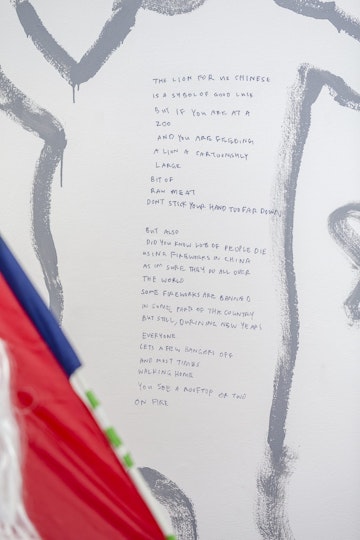 THE LION FOR US CHINESE
IS A SYBOL OF GOOD LUSE
BUT IF YOU ARE AT A
ZOO
AND YOU ARE FEEDING
A LION A CARTOONSHLY
LARGE
BIT OF
RAW MEAT
DONT STICK YOUR HAND TOO FAR DOWN
BUT ALSO
DID YOU KNOW LOTS OF PEOPLE DIE
USING FIREWORKS IN CHINA
AS IM SURE THEY DO ALL OVER
THE WORLD
SOME FIREWORKS ARE BANNED
IN SOME PARTS OF THE COUNTRY
BUT STILL, DURING NEW YEARS
EVERYONE
LETS A FEW BANGERS OFF
AND MOST TIMES
WALKING HOME
YOU SEE A ROOFTOP OR TWO
ON FIRE